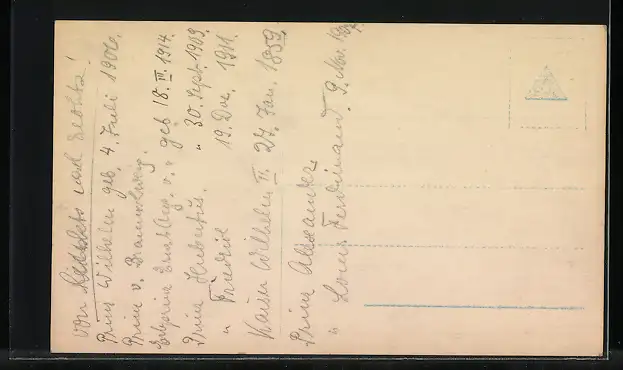 von links nach rechts!
Prinz Wilhelm geb. 4. Juli 1906.
Prinz v. Braunschweig.
Erbprinz Ernst Aug. v. " geb 18. III. 1914.
Prinz Hubertus. " 30. Sept. 1909.
" Friedrich 19. Dez. 1911.
Kaiser Wilhelm II. 27. Jan. 1859.
Prinz Alexander.
" Louis Ferdinand. 9. Nov.